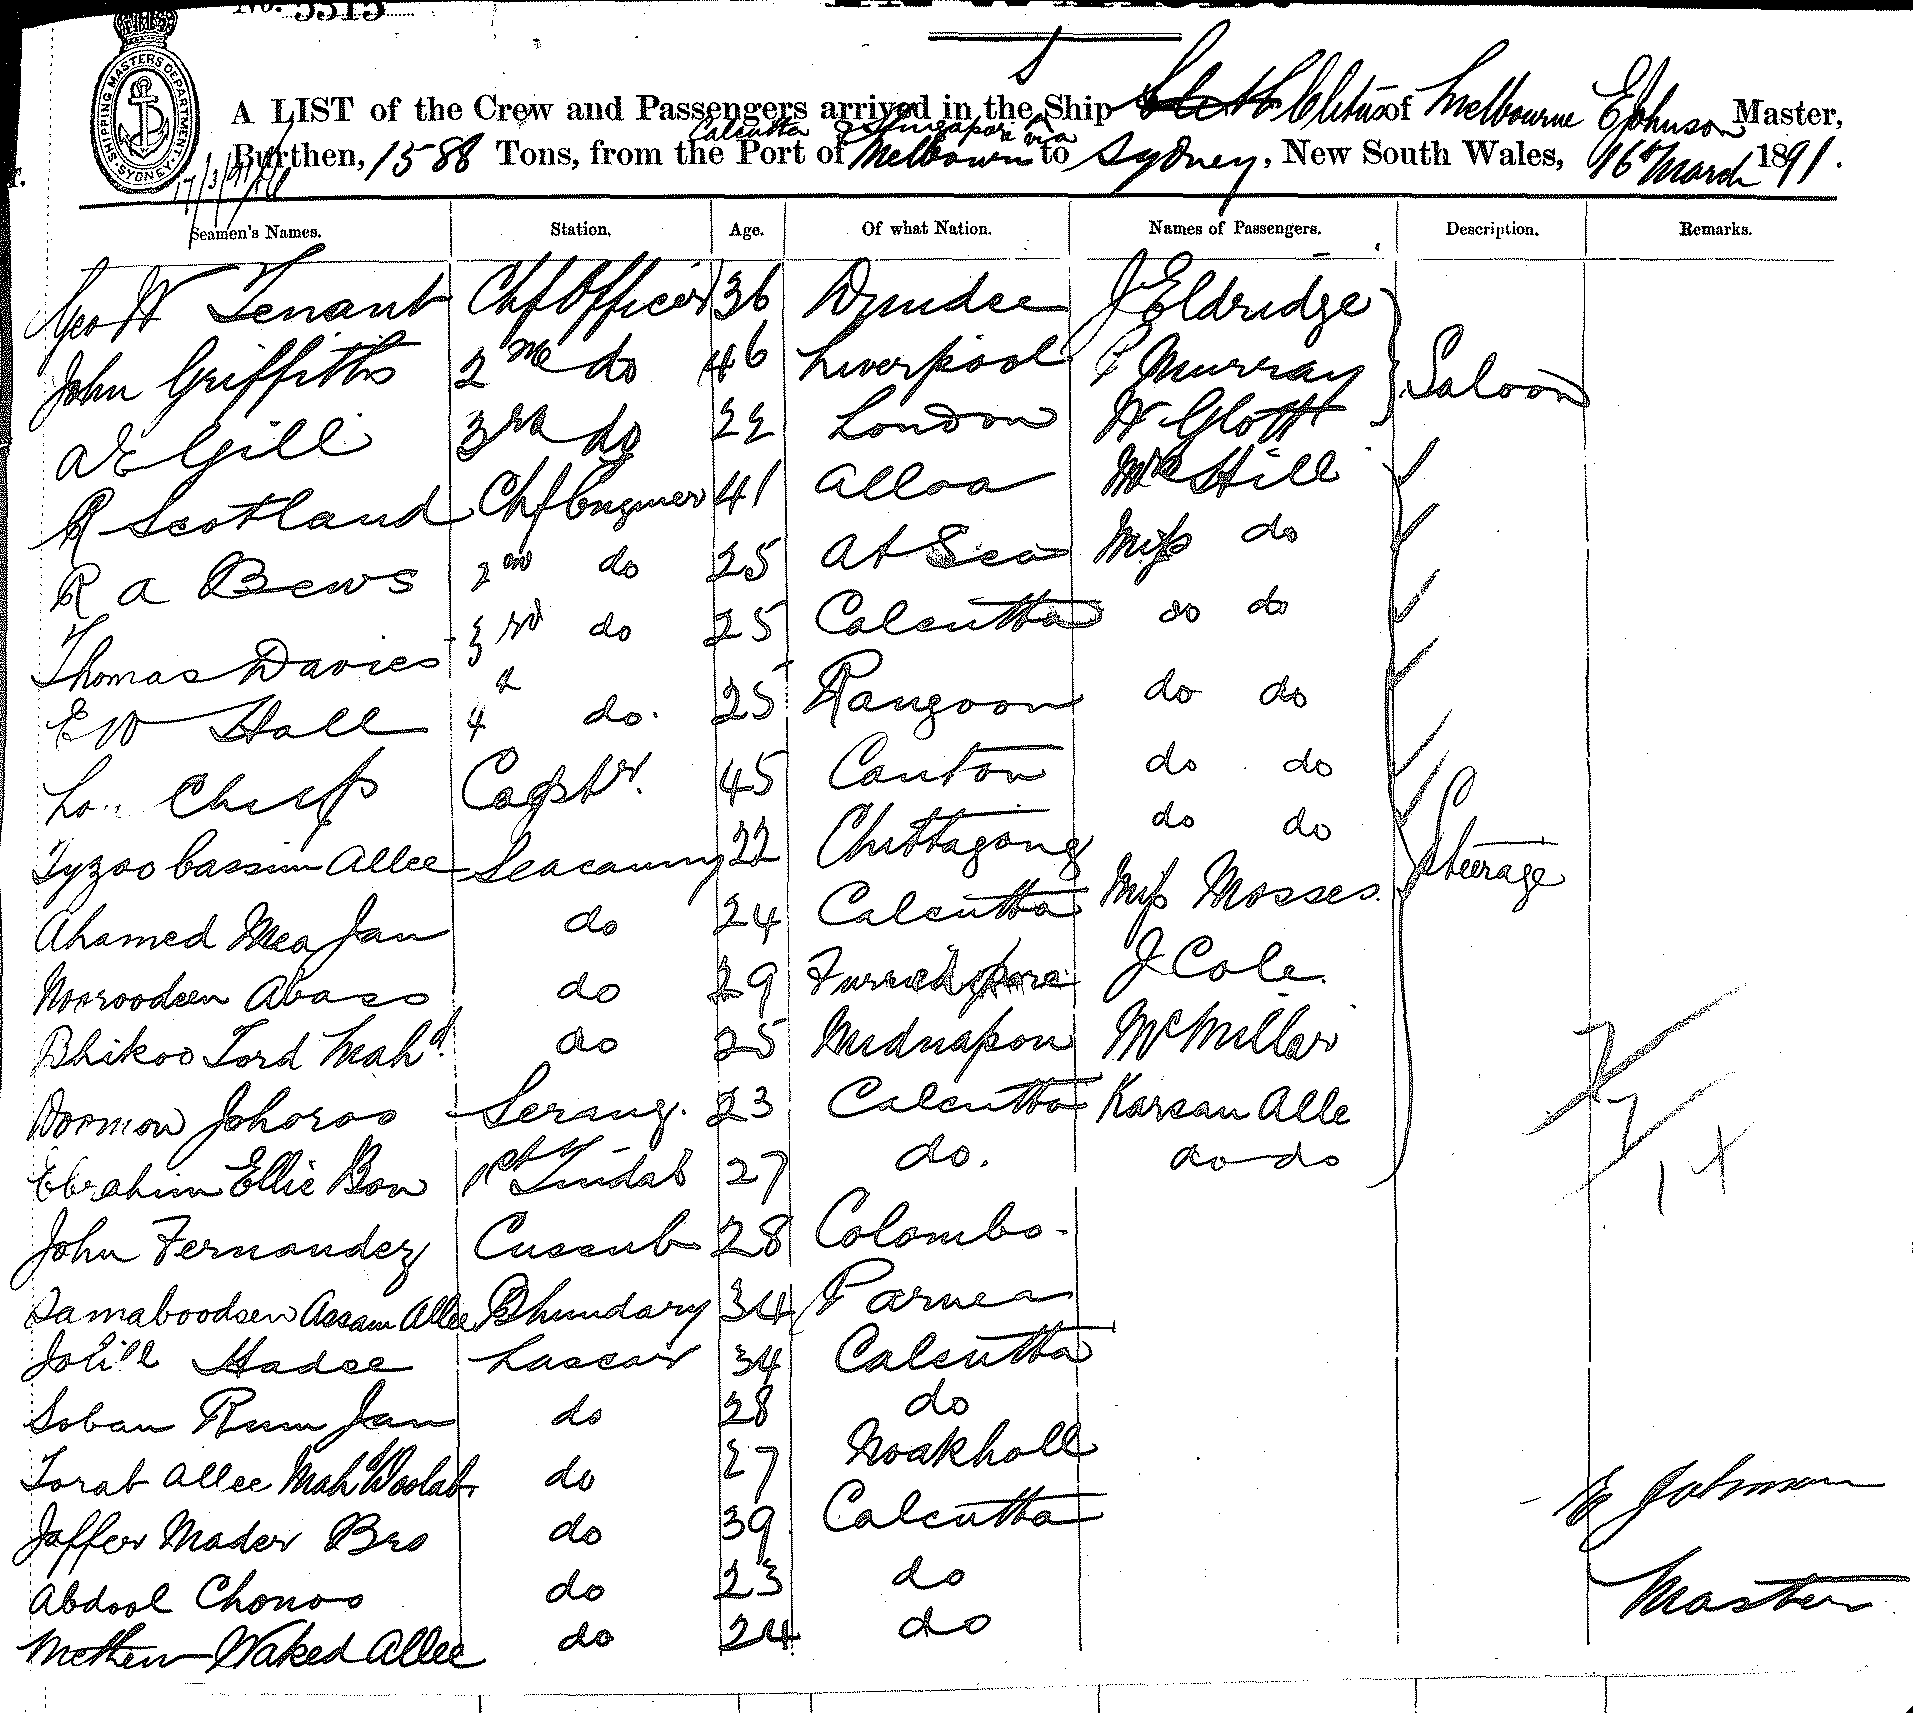 No. 5315
SHIPPING MASTERS DEPARTMENT SYDNEY
A LIST of the Crew and Passengers arrived in the Ship Cletus of Melbourne E Johnson Master,
Calcutta & Singapore via
Burthen, 1588 Tons, from the Port of Melbourne to Sydney, New South Wales, 16 March 1891.
17/3/91
Seamen's Names. Station. Age. Of what Nation. Names of Passengers. Description. Remarks.
Geo W Tenant Chf Officer 36 Dundee J Eldridge
John Griffiths 2nd do 46 Liverpool P Murray Saloon
A E Gill 3rd do 22 London W Glott
R Scotland Chf Engineer 41 Alloa Mrs Hill
R A Bews 2nd do 25 At Sea Miss do
Thomas Davies 3rd do 25 Calcutta do do
E W Hall 4 do. 25 Rangoon do do
45 Canton do do
Tyzoo Cassim Allee Seacunny 22 Chittagong do do
Ahamed Mea Jan do 24 Calcutta Miss Mosses. Steerage
Nooroodeen Abass do 29 J Cole.
Bhikoo Tord Mahd. do 25 Midnapon McMillar
Domon Johoroo Serang. 23 Calcutta Karsan Alle
Ebrahim Ellie Box 1st Tindal 27 do. do do
John Fernandez Cussub 28 Colombo.
Jamaboodeen Assam Allee Bhundary 34 Parnea
Hadee Lascar 34 Calcutta
Soban Rum Jan do 28 do
Torab Allee Mah Woolab do 27 Noakholl
Jaffer Mader Bro do 39 Calcutta
Abdool Chonoo do 23 do
Methew Waked Allee do 24 do
14
E Johnson
Master